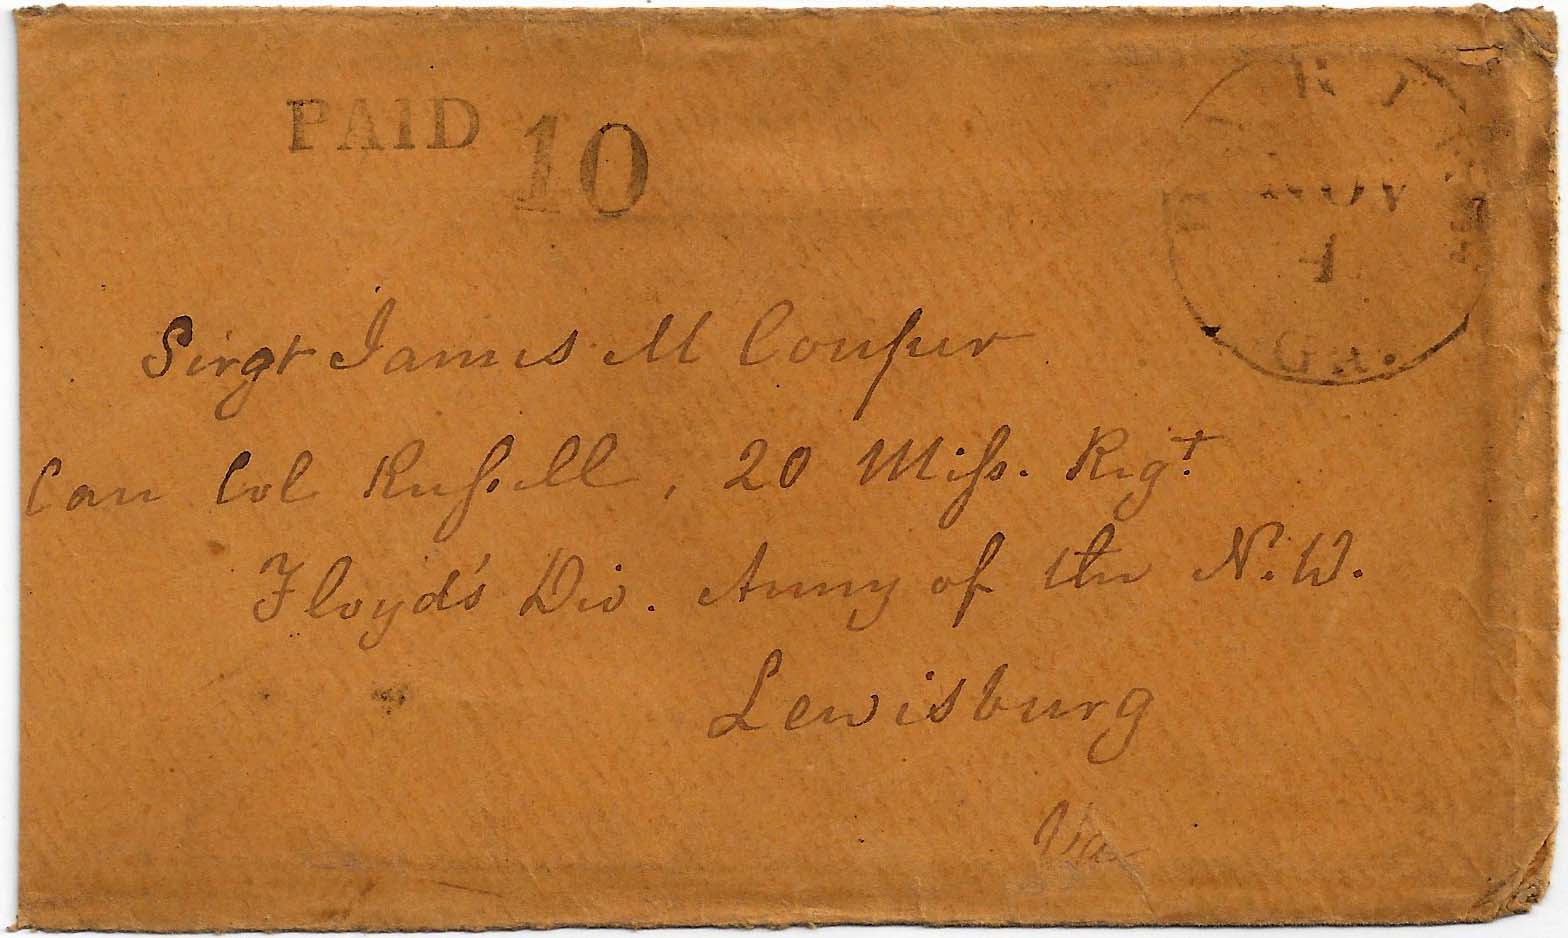 PAID 10
NOV
GA.
Sergt James M Couper
Care Col Russell, 20 Miss. Regt.
Floyd's Div. Army of the N.W.
Lewisburg
Va